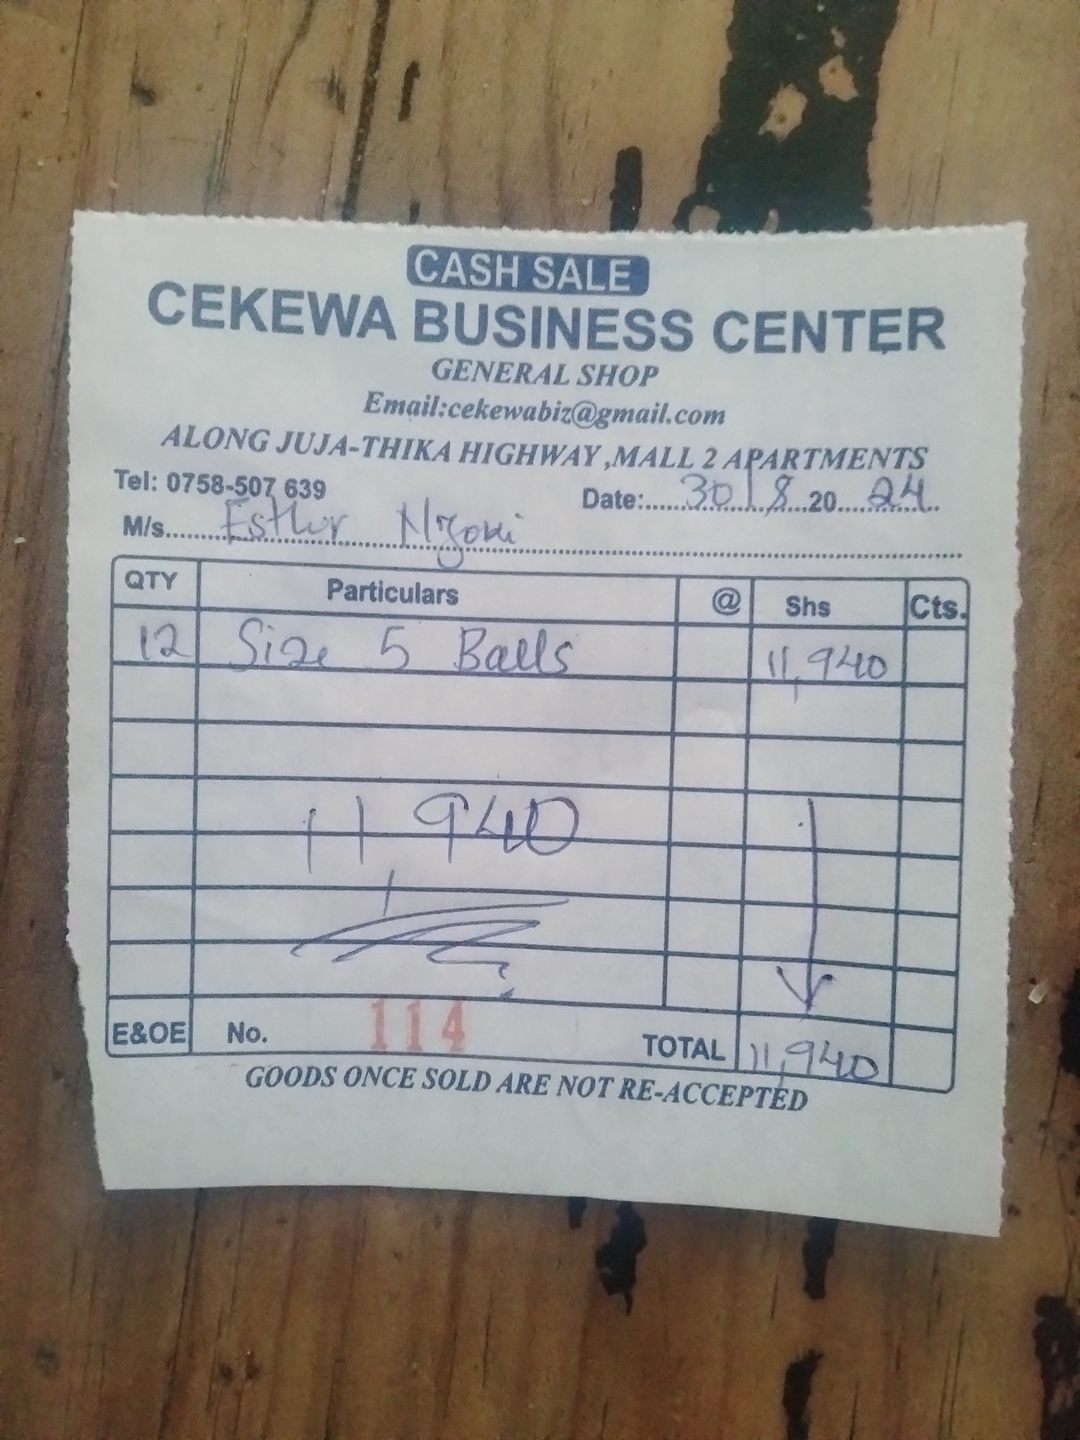 CASH SALE
CEKEWA BUSINESS CENTER
GENERAL SHOP
Email:cekewabiz@gmail.com
ALONG JUJA-THIKA HIGHWAY ,MALL 2 APARTMENTS
Tel: 0758-507 639 Date:....30/8....20...24...
M/s......Esther
QTY Particulars @ Shs Cts.
12 Size 5 Balls 11,940
11940
E&OE No. 114 TOTAL 11,940
GOODS ONCE SOLD ARE NOT RE-ACCEPTED